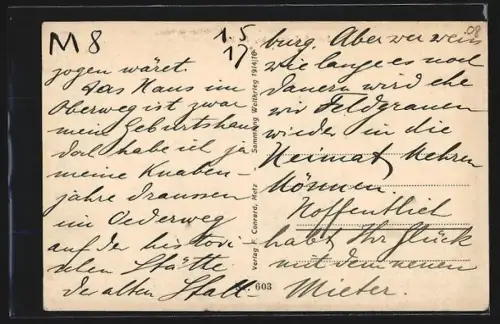 M 8
15
17
08
zogen wäret.
Das Haus im
Oberweg ist zwar
mein Geburtshaus
doch habe ich ja
meine Knaben-
jahre draussen
im Oederweg
auf der histori-
schen Stätte
der alten Stall-
burg. Aber wer weis
wie lange es noch
dauern wird ehe
wir Feldgrauen
wieder in die
Heimat kehren
können.
Hoffentlich
habt Ihr Glück
mit dem neuen
Mieter.
Verlag F. Conrard, Metz
Sammlung Weltkrieg 1914/16
603